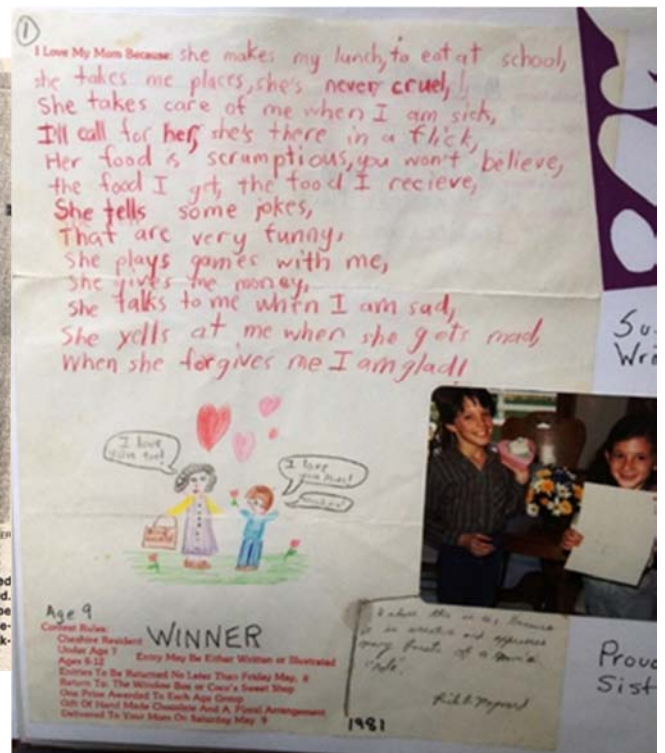 1
I Love My Mom Because: she makes my lunch, to eat at school,
she takes me places, she's never cruel,
She takes care of me when I am sick,
I'll call for her, she's there in a flick,
Her food is scrumptious, you won't believe,
the food I get, the food I recieve,
She tells some jokes,
That are very funny,
She plays games with me,
She gives me money,
She talks to me when I am sad,
She yells at me when she gets mad,
When she forgives me I am glad!
I love you too!
I love you Mom!
Age 9
WINNER
Contest Rules:
Cheshire Resident
Under Age 7
Ages 8-12
Entry May Be Either Written or Illustrated
Entries To Be Returned No Later Than Friday May, 8
Return To: The Window Box or Coco's Sweet Shop
One Prize Awarded To Each Age Group
Gift Of Hand Made Chocolate And A Floral Arrangement
Delivered To Your Mom On Saturday May 9
I chose this as #1 because
it is creative and expresses
many facets of a Mom's
"role".
1981
Su
Wri
Prou
Sist